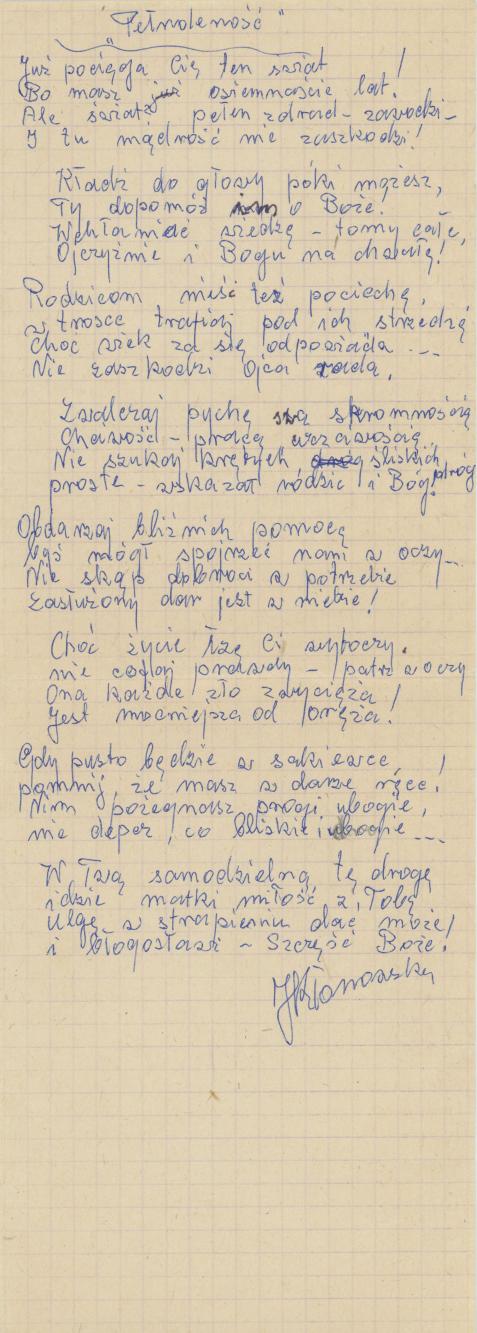 „Pełnoleność"
Już pociąga Cię ten świat!
Bo masz już osiemnaście lat.
Ale świat pełen zdrad – zawodzi –
I tu mądrość nie zaszkodzi!
Kładź do głowy póki możesz,
Ty dopomóż o Boże!
Wchłaniać wiedzę – tomy całe,
Ojczyźnie i Bogu na chwałę!
Rodzicom nieść też pociechę,
w trosce trafiaj pod ich strzechę
Choć wiek za się odpowiada ...
Nie zaszkodzi Ojca rada.
Zwalczaj pychę swą skromnością
Chciwość – pracą uczciwością.
Nie szukaj krętych śliskich dróg
proste – wskazał rodzic i Bóg.
Obdarzaj bliźnich pomocą
byś mógł spojrzeć nam w oczy –
Nie skąp dobroci w potrzebie
zasłużony dar jest w niebie!
Choć życie łzę Ci wytoczy.
nie cofaj prawdy – patrz w oczy
Ona każde zło zwycięża!
Jest mocniejsza od oręża!
Gdy pusto będzie w sakiewce,
pomnij, że masz w darze ręce!
Nim pożegnasz progi ubogie,
nie depcz, co bliskie i drogie ...
W Twą samodzielną tę drogę
idzie matki miłość z Tobą
Ulgę w strapieniu dać może!
i błogosławi – Szczęść Boże!